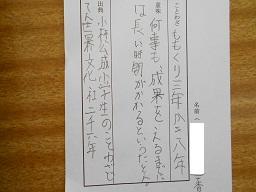 名前(
番
ことわざ ももくり三年かき八年
意味 何事も、成果をえるまでに
は長い時間がかかるといったとえ。
出典 小林公成 小学生のことわざ
てん 世界文化社 二千六年